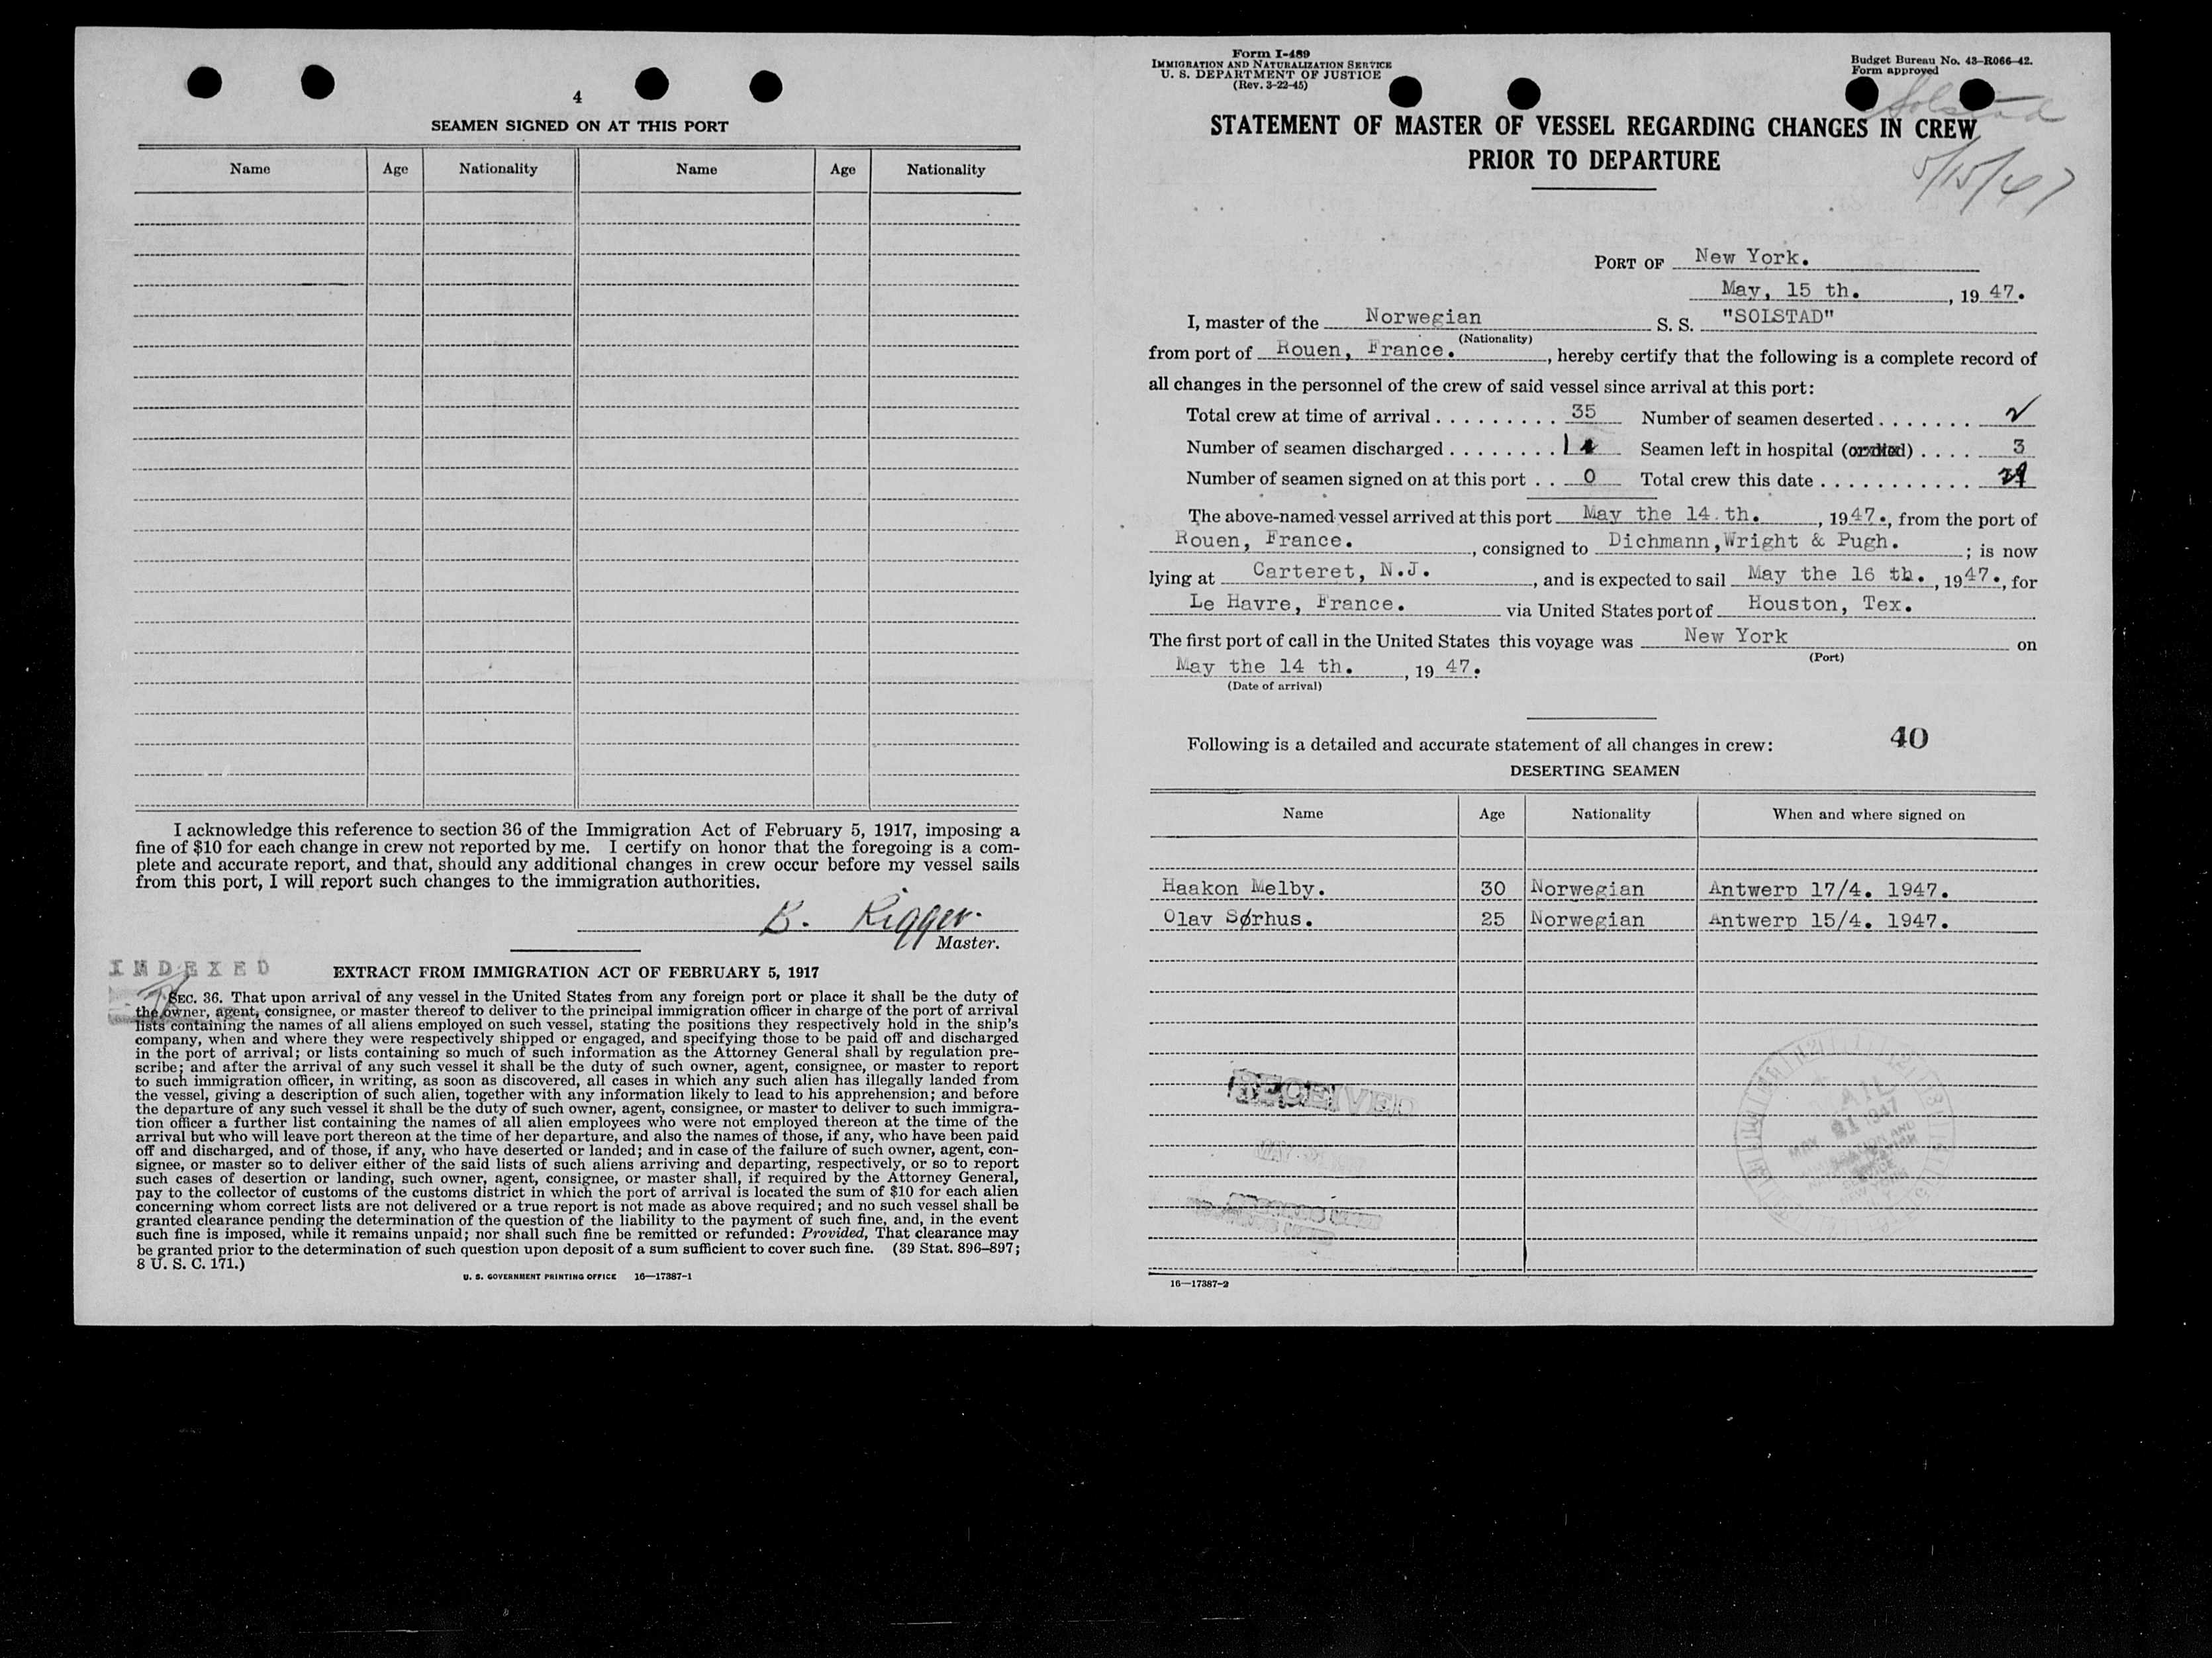 4
SEAMEN SIGNED ON AT THIS PORT
Name Age Nationality Name Age Nationality
I acknowledge this reference to section 36 of the Immigration Act of February 5, 1917, imposing a
fine of $10 for each change in crew not reported by me. I certify on honor that the foregoing is a com-
plete and accurate report, and that, should any additional changes in crew occur before my vessel sails
from this port, I will report such changes to the immigration authorities.
B. Rigger.
Master.
INDEXED
EXTRACT FROM IMMIGRATION ACT OF FEBRUARY 5, 1917
SEC. 36. That upon arrival of any vessel in the United States from any foreign port or place it shall be the duty of
the owner, agent, consignee, or master thereof to deliver to the principal immigration officer in charge of the port of arrival
lists containing the names of all aliens employed on such vessel, stating the positions they respectively hold in the ship's
company, when and where they were respectively shipped or engaged, and specifying those to be paid off and discharged
in the port of arrival; or lists containing so much of such information as the Attorney General shall by regulation pre-
scribe; and after the arrival of any such vessel it shall be the duty of such owner, agent, consignee, or master to report
to such immigration officer, in writing, as soon as discovered, all cases in which any such alien has illegally landed from
the vessel, giving a description of such alien, together with any information likely to lead to his apprehension; and before
the departure of any such vessel it shall be the duty of such owner, agent, consignee, or master to deliver to such immigra-
tion officer a further list containing the names of all alien employees who were not employed thereon at the time of the
arrival but who will leave port thereon at the time of her departure, and also the names of those, if any, who have been paid
off and discharged, and of those, if any, who have deserted or landed; and in case of the failure of such owner, agent, con-
signee, or master so to deliver either of the said lists of such aliens arriving and departing, respectively, or so to report
such cases of desertion or landing, such owner, agent, consignee, or master shall, if required by the Attorney General,
pay to the collector of customs of the customs district in which the port of arrival is located the sum of $10 for each alien
concerning whom correct lists are not delivered or a true report is not made as above required; and no such vessel shall be
granted clearance pending the determination of the question of the liability to the payment of such fine, and, in the event
such fine is imposed, while it remains unpaid; nor shall such fine be remitted or refunded: Provided, That clearance may
be granted prior to the determination of such question upon deposit of a sum sufficient to cover such fine. (39 Stat. 896–897;
8 U. S. C. 171.)
U. S. GOVERNMENT PRINTING OFFICE 16—17387-1
Form I-489
IMMIGRATION AND NATURALIZATION SERVICE
U. S. DEPARTMENT OF JUSTICE
(Rev. 3-22-45)
Budget Bureau No. 43-R066-42.
Form approved
Solstad
STATEMENT OF MASTER OF VESSEL REGARDING CHANGES IN CREW
PRIOR TO DEPARTURE
5/15/47
PORT OF New York.
May, 15 th. , 19 47.
I, master of the Norwegian S. S. "SOLSTAD"
(Nationality)
from port of Rouen, France. , hereby certify that the following is a complete record of
all changes in the personnel of the crew of said vessel since arrival at this port:
Total crew at time of arrival . . . . . . . . . 35 Number of seamen deserted . . . . . . . 2
Number of seamen discharged . . . . . . . . 1 Seamen left in hospital (or died) . . . . 3
Number of seamen signed on at this port . . 0 Total crew this date . . . . . . . . . . . 29
The above-named vessel arrived at this port May the 14 th. , 19 47., from the port of
Rouen, France. , consigned to Dichmann, Wright & Pugh. ; is now
lying at Carteret, N.J. , and is expected to sail May the 16 th. , 19 47., for
Le Havre, France. via United States port of Houston, Tex.
The first port of call in the United States this voyage was New York on
(Port)
May the 14 th. , 19 47.
(Date of arrival)
40
Following is a detailed and accurate statement of all changes in crew:
DESERTING SEAMEN
Name Age Nationality When and where signed on
Haakon Melby. 30 Norwegian Antwerp 17/4. 1947.
Olav Sørhus. 25 Norwegian Antwerp 15/4. 1947.
RECEIVED
MAIL
MAY 21 1947
16—17387-2